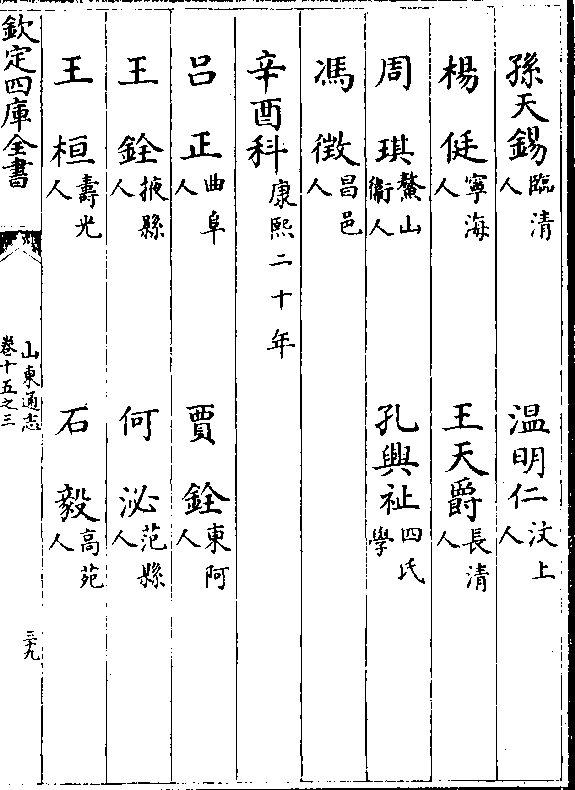 孫天錫臨清人　溫明仁汶上人
楊侹寧海人　王天爵長清人
周琪鰲山衞人　孔興祉四氏學
馮徴昌邑人
辛酉科康熙二十年
呂正曲阜人　賈銓東阿人
王銓掖縣人　何泌范縣人
王桓壽光人　石毅高苑人
欽定四庫全書　山東通志卷十五之三　三十九